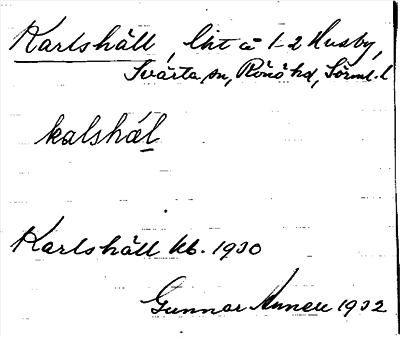 Karlshäll, lht å 1-2 Husby,
Svärta sn, Rönö hd, Sörml. l
kalshál
Karlshäll kb. 1930
Gunnar 1932